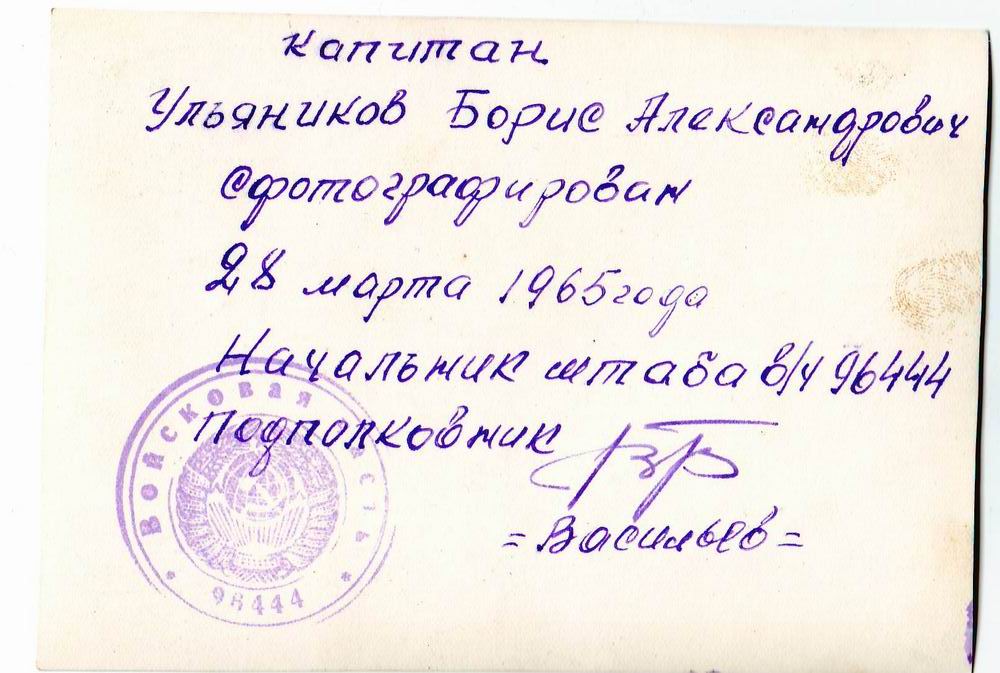 капитан
Ульяников Борис Александрович
сфотографирован
28 марта 1965 года
Начальник штаба в/ч 96444
Подполковник
=Васильев=
Войсковая часть
* 96444 *